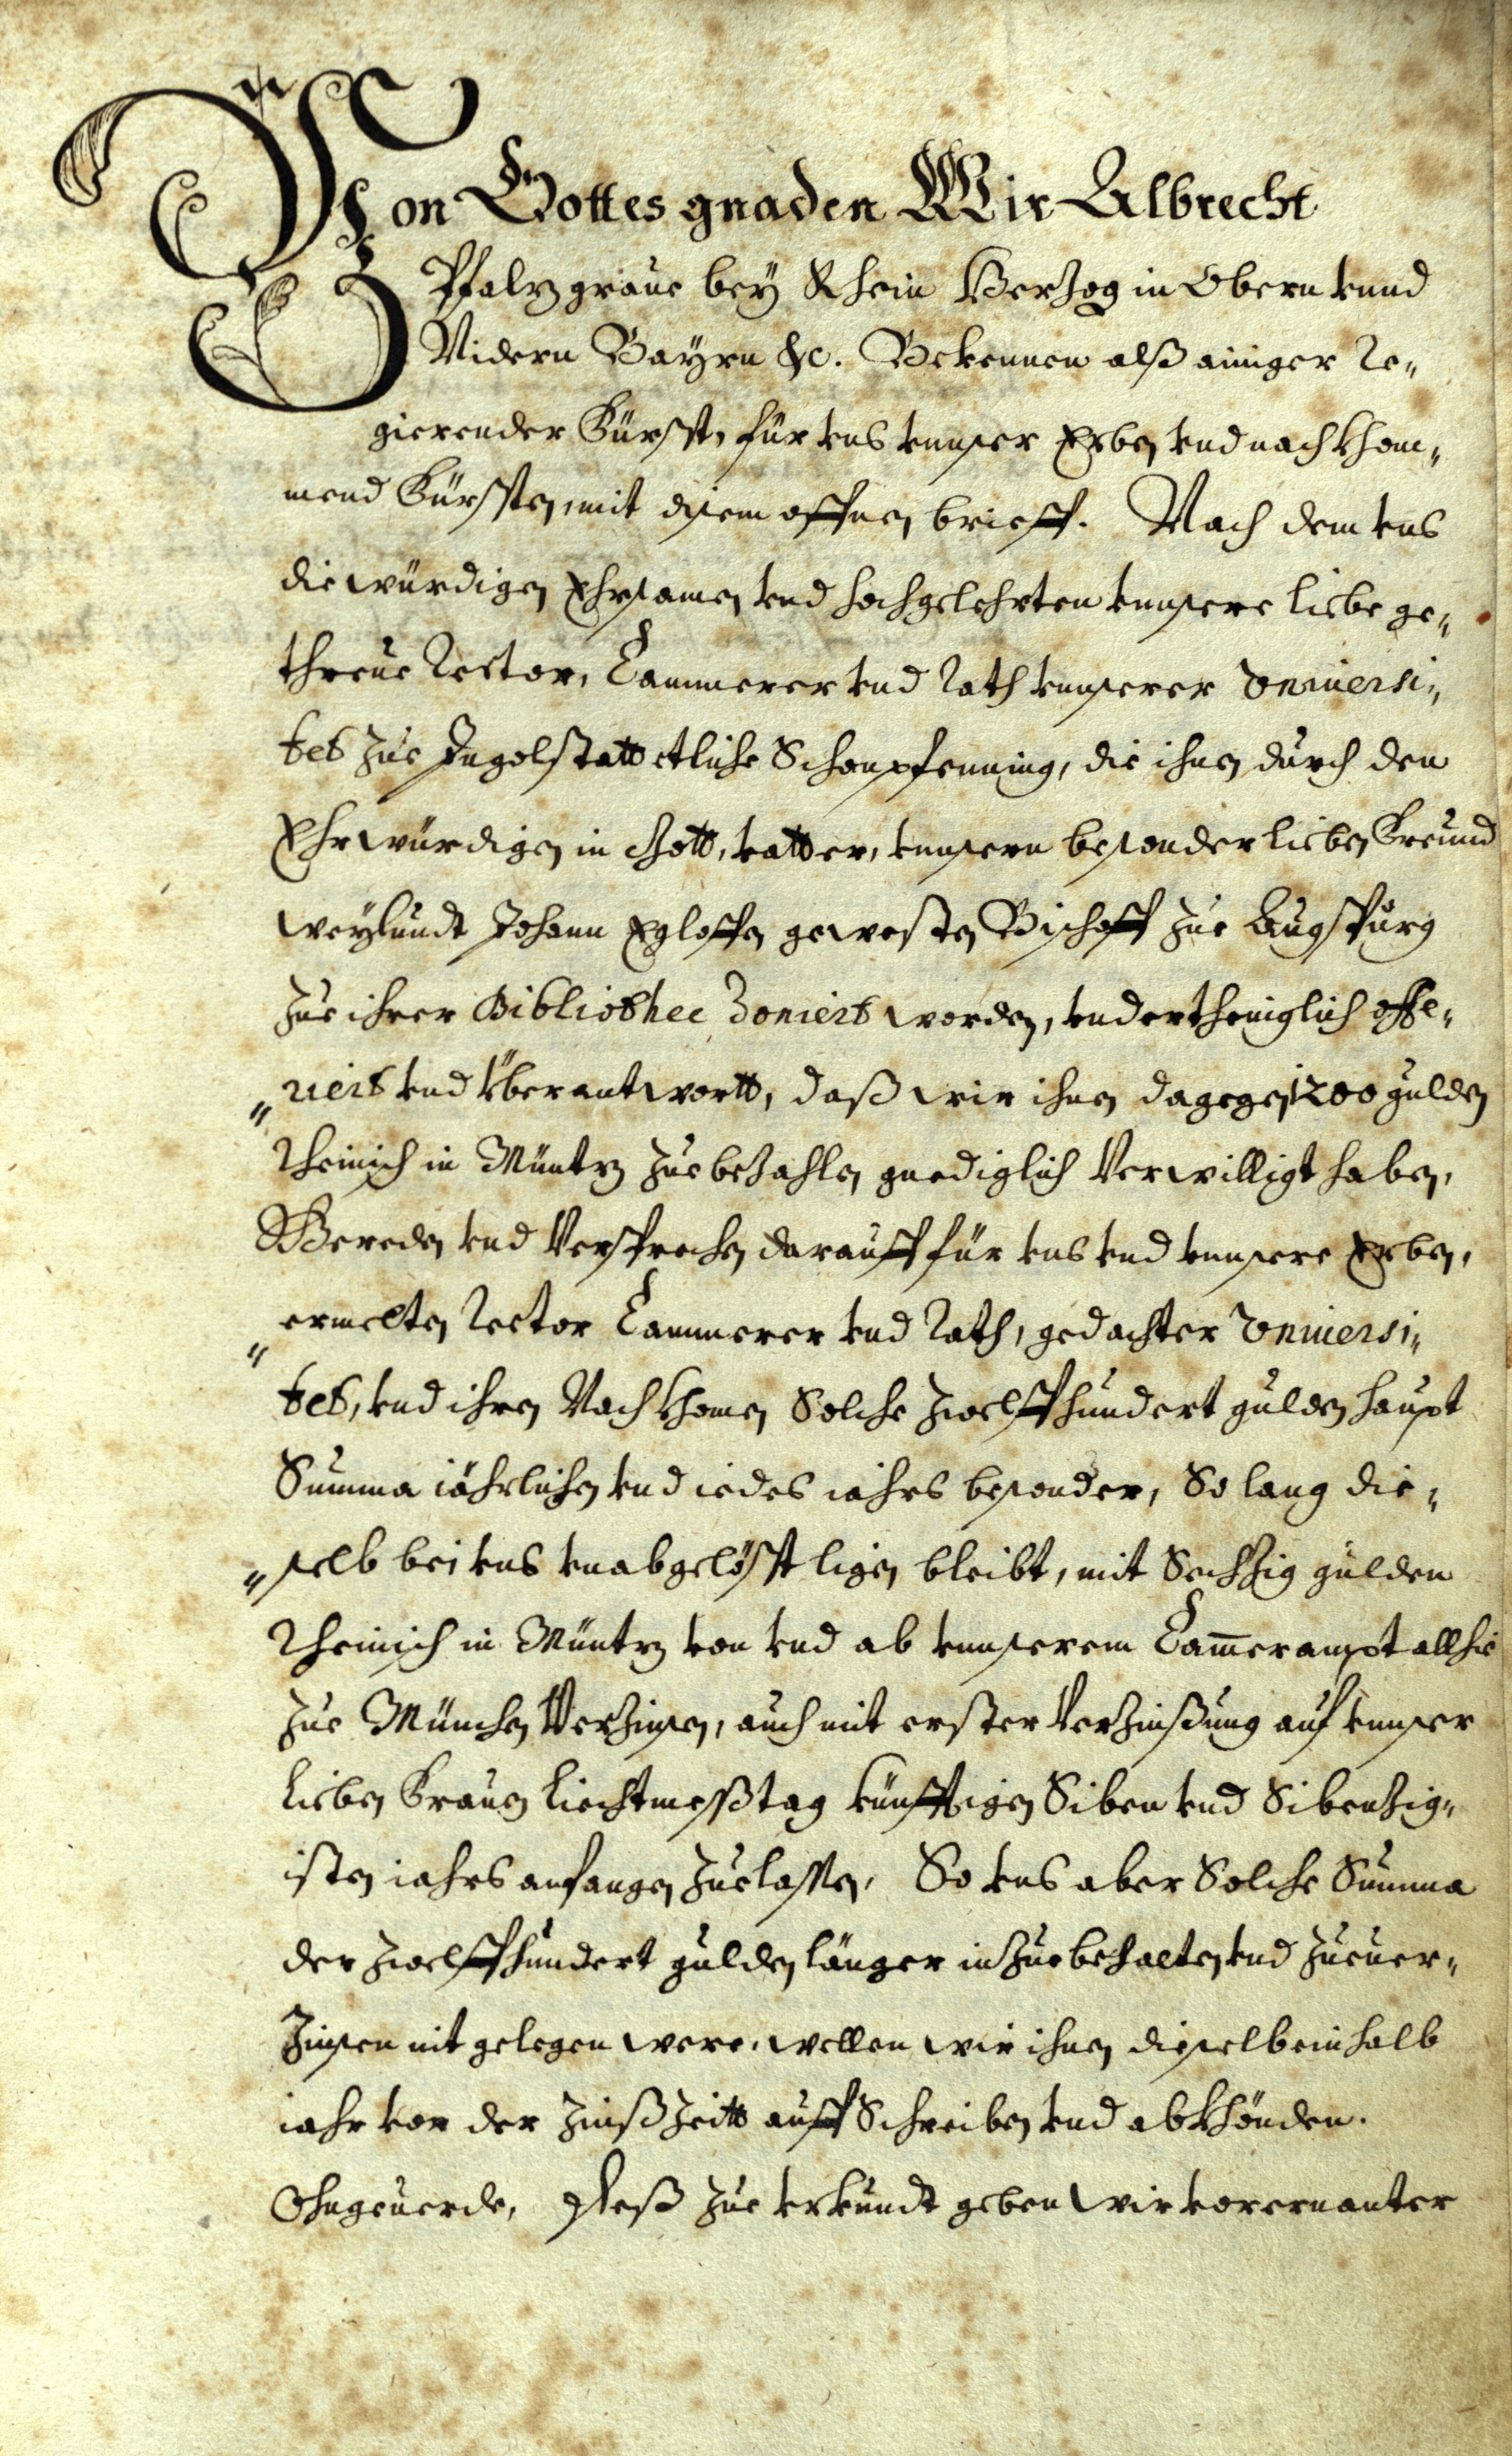 Von Gottes gnaden Wir Albrecht
Pfaltzgraue bey Rhein Hertzog in Obern vnnd
Nidern Bayrn &c. Bekennen alß ainiger Re„
gierender Fürst, für vns vnnser Erben vnd nachkhom„
mend Fürsten, mit disem offnen brieff. Nach dem vns
die würdigen Ehrsamen vnd hochgelehrten vnnsere liebe ge„
threue Rector, Cammerer vnd Rath vnnserer Vniuersi„
tet zue Ingolstatt etliche Schaupfenning, die ihnen durch den
Ehrwürdigen in Gott, vatter, vnnsern besonder lieben Freund
weylundt Johann Egloffen gewesten Bischoff zue Augspurg
zue ihrer Bibliothec doniert worden, vndertheniglich offe„
„riert vnd überantwortt, daß wir ihnen dagegen 1200 gulden
Rheinisch in Müntz zuebezahlen gnediglich Verwilligt haben,
Bereden vnd Versprechen darauff für vns vnd vnnsere Erben,
„ermelten Rector Cammerer vnd Rath, gedachter Vniuersi„
tet, vnd ihren Nachkhomen Solche zwelffhundert gulden haupt
Summa jährlichen vnd iedes iahrs besonder, So lang die„
„selb bei vns vnabgelöst ligen bleibt, mit Sechzig gulden
Rheinisch in Müntz von vnd ab vnnserem Cam̄erampt allhie
zue München Verzinsen, auch mit erster Verzinßung auf vnnser
lieben Frauen liechtmeßtag künfftigen Siben vnd Sibenzig„
isten iahrs anfangen zuelassen, So vns aber Solche Summa
der zwelffhundert gulden länger inzuebehalten vnd zuuer„
zinsen nit gelegen were, wellen wir ihnen dieselb ein halb
iahr vor der zinßzeitt auffschreiben vnd abkhönden.
Ohngeuerde, Deß zue vrkundt geben wir vorernanter